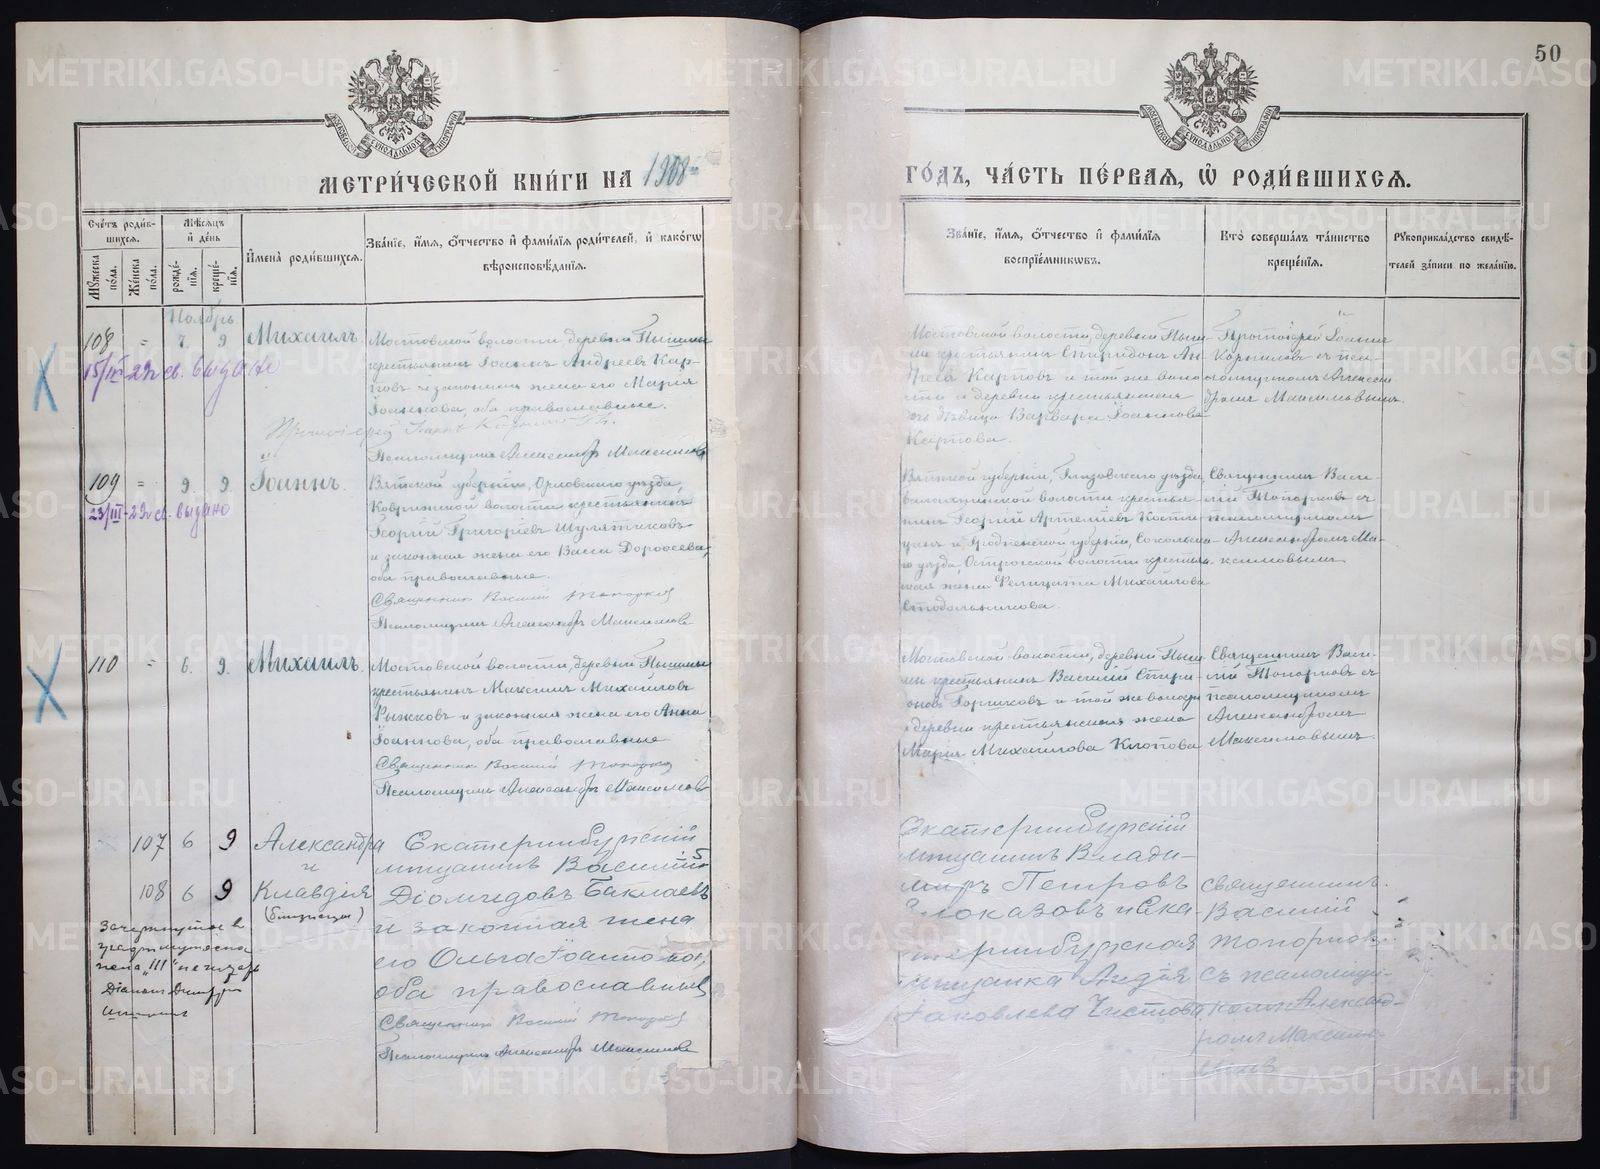 50
МЕТРИ́ЧЕСКОЙ КНИ́ГИ НА 1908 ГО́ДЪ, ЧА́СТЬ ПЕ́РВАЯ, Ѡ҆ РОДИ́ВШИХСѦ.
Сче́тъ роди́в-
шихсѧ.
Мѣ́сѧцъ
и҆ де́нь
Мꙋ́жеска по́ла.
Же́нска по́ла.
рожде́нїѧ.
креще́нїѧ.
И҆мена̀ роди́вшихсѧ.
Зва́нїе, и҆́мѧ, ѻ҆́тчество и҆ фами́лїѧ роди́телей, и҆ како́гѡ
вѣроисповѣ́данїѧ.
Зва́нїе, и҆́мѧ, ѻ҆́тчество и҆ фами́лїѧ
воспрїе́мникѡвъ.
Кто̀ соверша́лъ та́инство
креще́нїѧ.
Рꙋкоприкла́дство свидѣ́-
телей за́писи по жела́нїю.
Ноябрь
108 = 7. 9 Михаилъ.
15/III-29г св. выдано
Мостовской волости, деревни Пышмы
крестьянинъ Іоаннъ Андреевъ Кар-
повъ и законная жена его Марія
Іоаннова, оба православные.
Протоіерей Іоаннъ Корниловъ
Псаломщикъ Александръ Максимовъ
Мостовской волости, деревни Пыш-
мы крестьянинъ Спиридонъ Ан-
дреевъ Карповъ и той же воло-
сти и деревни крестьянская
дѣвица Варвара Іоаннова
Карпова.
Протоіерей Іоаннъ
Корниловъ съ пса-
ломщикомъ Алексан-
дромъ Максимовымъ.
109 = 9. 9 Іоаннъ.
23/III-29г св. выдано
Вятской губерніи, Орловскаго уѣзда,
волости крестьянинъ
Георгій Григоріевъ Шулятиковъ
и законная жена его Васса Дороѳеева,
оба православные.
Священникъ Василій Топорковъ
Псаломщикъ Александръ Максимовъ
Вятской губерніи, Глазовскаго уѣзда
волости крестья-
нинъ Георгій Артеміевъ Кости-
и Гродненской губерніи, Сокольска-
го уѣзда, Островской волости крестьян-
ская жена Фелицата Михайлова
Священникъ Васи-
лій Топорковъ съ
псаломщикомъ
Александромъ Ма-
ксимовымъ.
110 = 6. 9. Михаилъ.
Мостовской волости, деревни Пышмы
крестьянинъ Максимъ Михайловъ
Рыжковъ и законная жена его Анна
Іоаннова, оба православные
Священникъ Василій Топорковъ
Псаломщикъ Александръ Максимовъ
Мостовской волости, деревни Пыш-
мы крестьянинъ Василій Спири-
доновъ Горшковъ и той же волости
и деревни крестьянская жена
Марія Михайлова Клопова
Священникъ Васи-
лій Топорковъ съ
псаломщикомъ
Александромъ
Максимовымъ.
107 6 9 Александра
и
108 6 9 Клавдія
(близнецы)
Екатеринбургскій
мѣщанинъ Василій
Діомидовъ Баклаевъ
и законная жена
его Ольга Іоаннова,
оба православные
Священникъ Василій Топорковъ
Псаломщикъ Александръ Максимовъ
Екатеринбургскій
мѣщанинъ Влади-
миръ Петровъ
Злоказовъ и Ека-
теринбургская
мѣщанка Лидія
Яковлева Чистова
священникъ
Василій
Топорковъ
съ псаломщи-
комъ Александ-
ромъ Максимо-
вымъ
METRIKI.GASO-URAL.RU